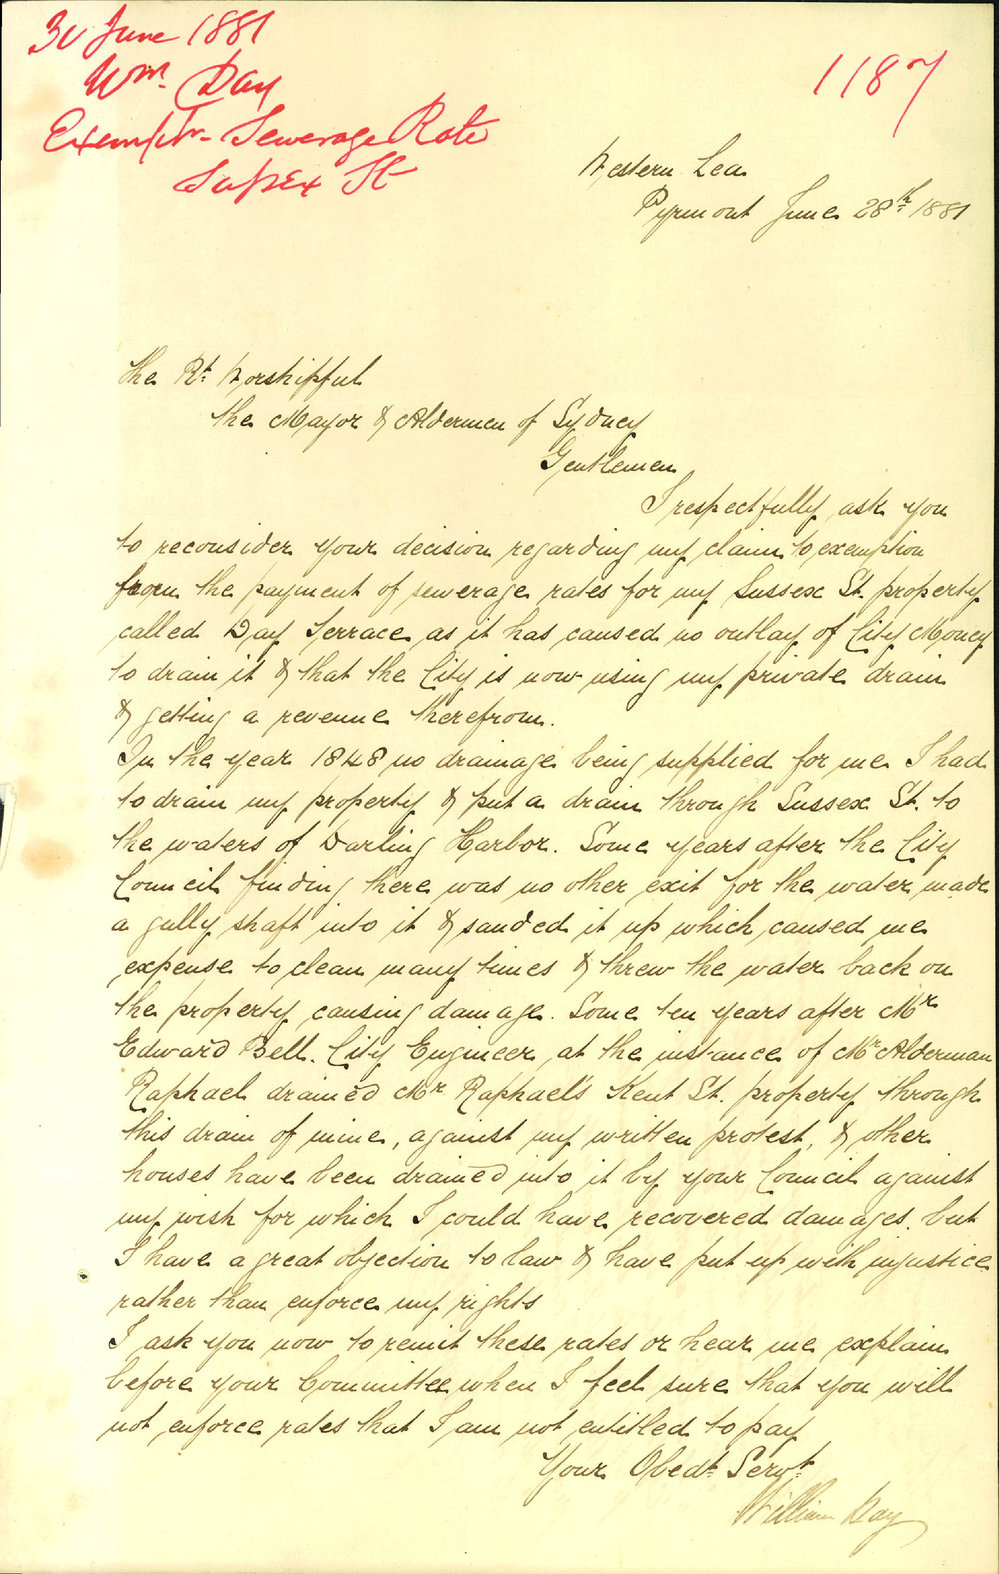 30 June 1881
Wm. Day
Exemptn - Sewerage Rate
Sussex St
1187
Western Lea
Pyrmont June 28th 1881
The Rt. Worshipful
the Mayor & Aldermen of Sydney
Gentlemen
I respectfully ask you
to reconsider your decision regarding my claim to exemption
from the payment of sewerage rates for my Sussex St. property
called Day Terrace as it has caused no outlay of City Money
to drain it & that the City is now using my private drain
& getting a revenue therefrom.
In the year 1848 no drainage being supplied for me I had
to drain my property & put a drain through Sussex St. to
the waters of Darling Harbor. Some years after the City
Council finding there was no other exit for the water made
a gully shaft into it & sanded it up which caused me
expense to clean many times & threw the water back on
the property causing damage. Some ten years after Mr
Edward Bell. City Engineer at the instance of Mr Alderman
Raphael drained Mr Raphael's Kent St. property through
this drain of mine, against my written protest, & other
houses have been drained into it by your Council against
my wish for which I could have recovered damages. but
I have a great objection to law & have put up with injustice
rather than enforce my rights
I ask you now to remit these rates or hear me explain
before your Committee when I feel sure that you will
not enforce rates that I am not entitled to pay
Your Obedt Servt.
William Day